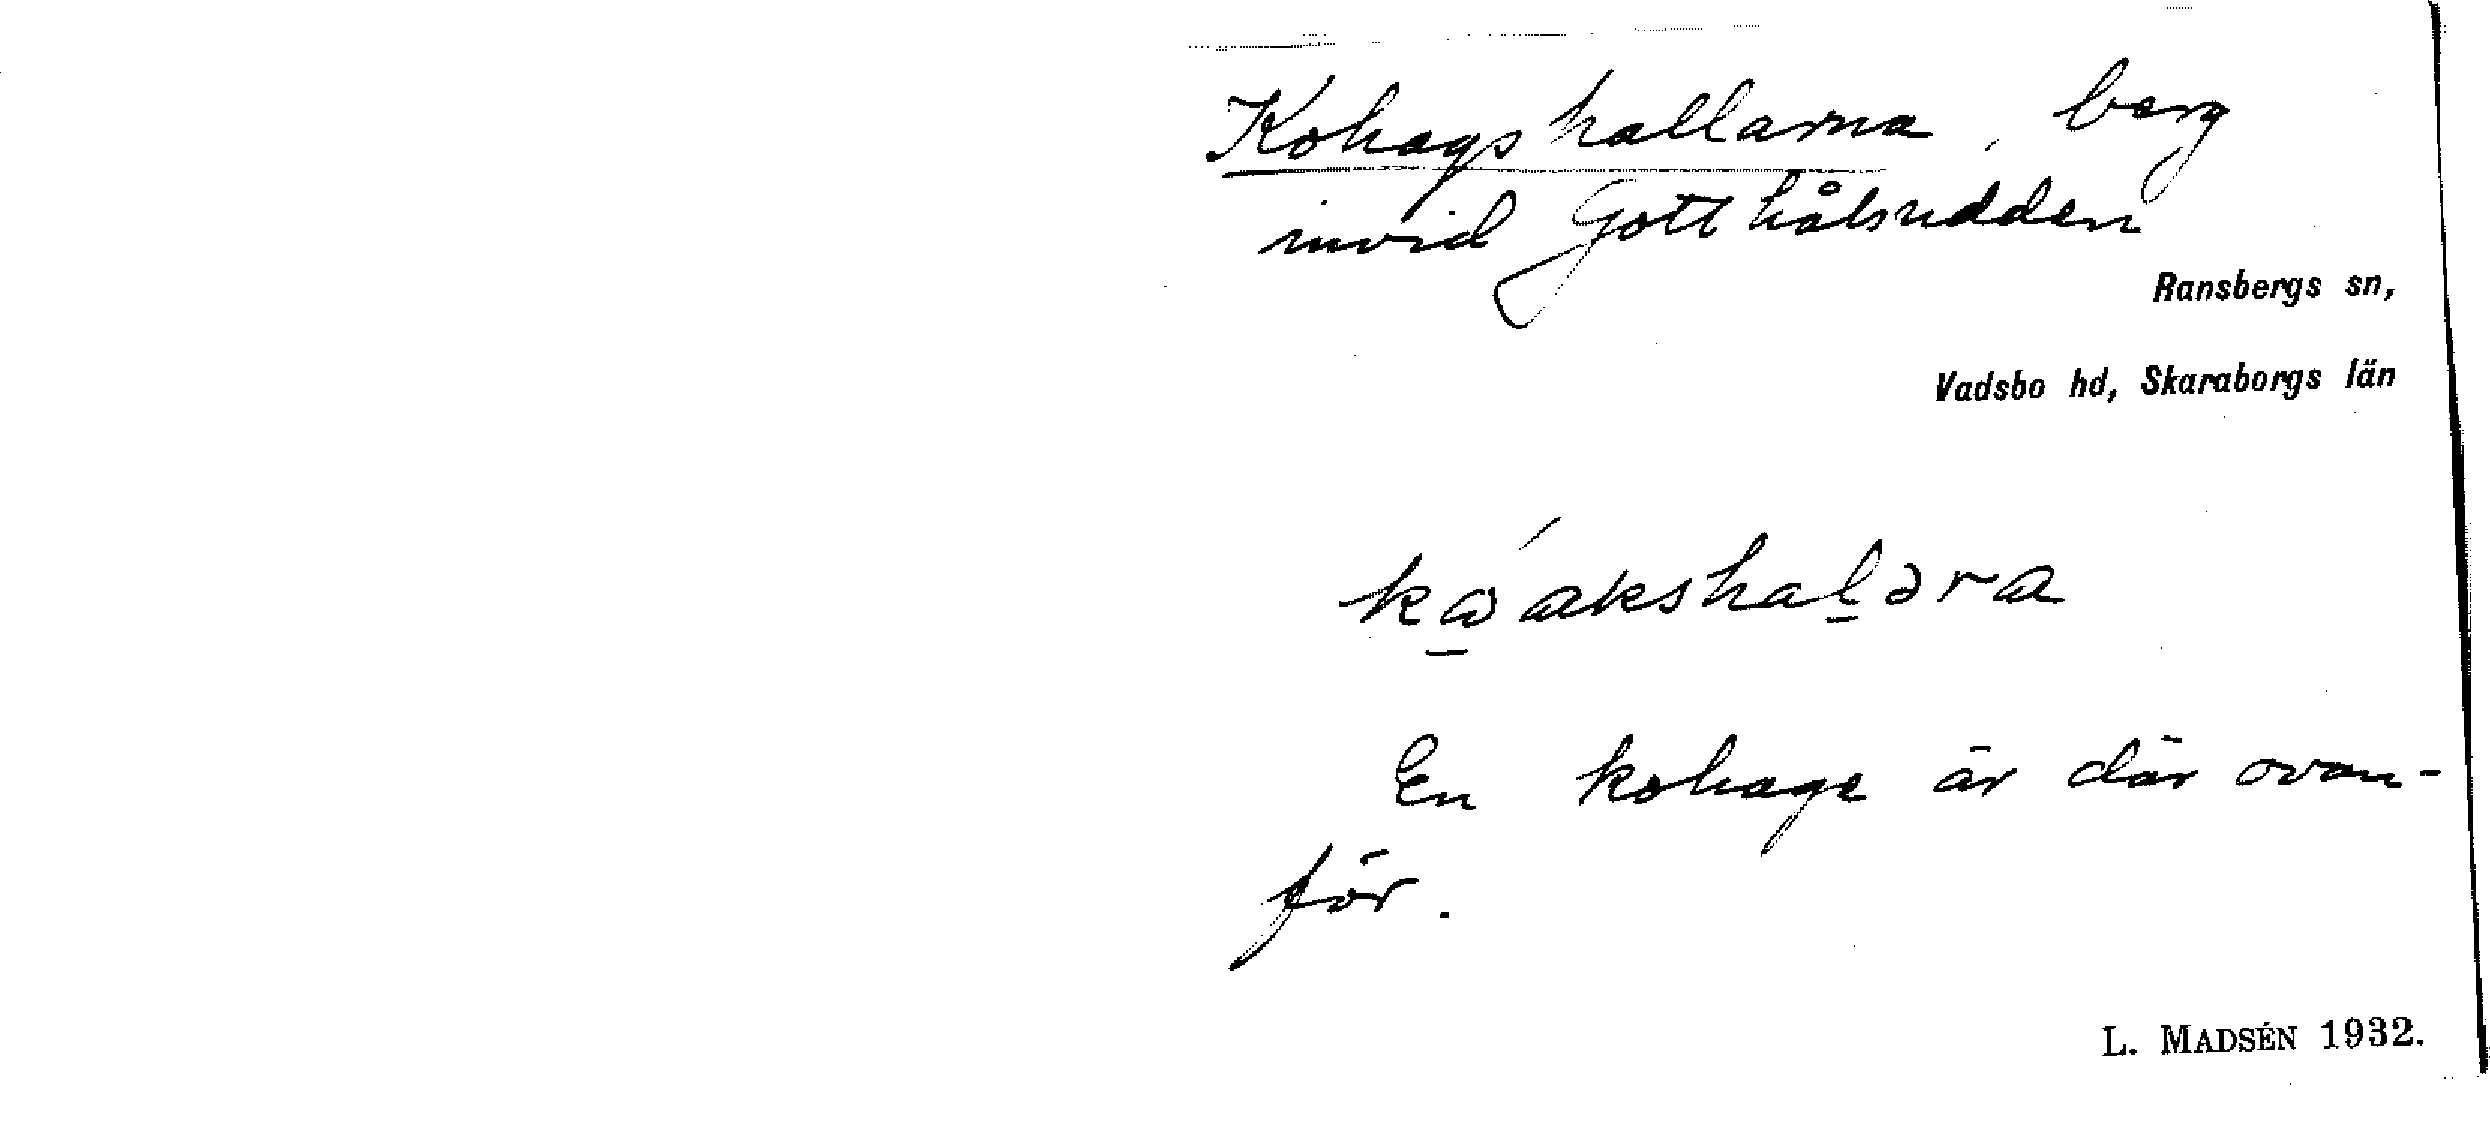 Kohagshallarna, berg
invid Gotthålsudden
Ransbergs sn,
Vadsbo hd, Skaraborgs län
En kohage är där ovan-
för.
L. MADSÉN 1932.